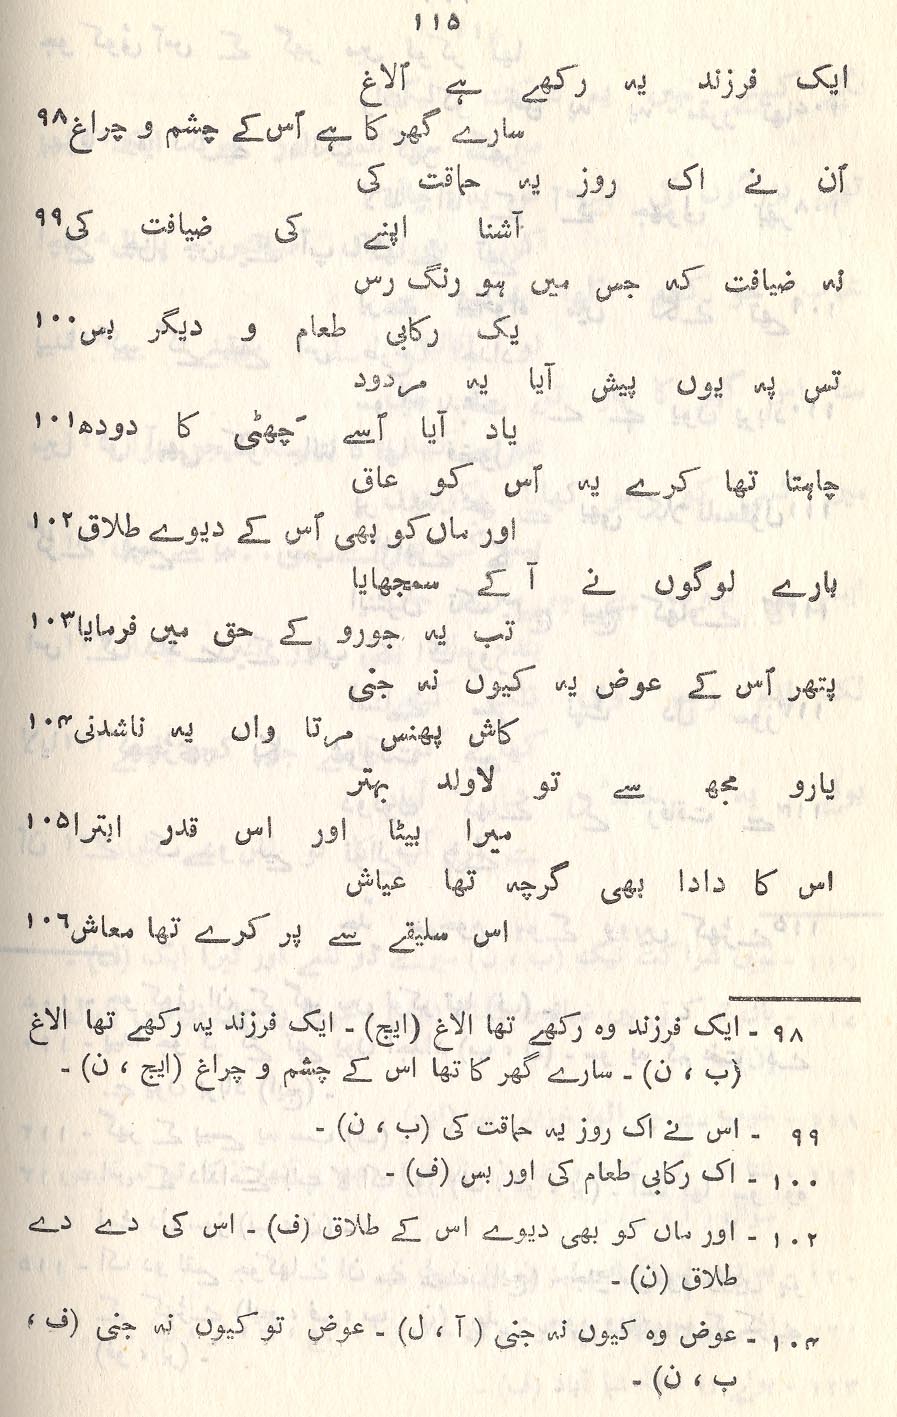 ۱۱۵
ایک فرزند یہ رکھے ہے اُلاغ
سارے گھر کا ہے اُس کے چشم و چراغ ۹۸
اُن نے اک روز یہ حماقت کی
آشنا اپنے کی ضیافت کی ۹۹
نہ ضیافت کہ جس میں ہو رنگ رس
یک رکابی طعام و دیگر بس ۱۰۰
تس پہ یوں پیش آیا یہ مردود
یاد آیا اُسے چَھٹی کا دودھ ۱۰۱
چاہتا تھا کرے یہ اُس کو عاق
اور ماں کو بھی اُس کے دیوے طلاق ۱۰۲
بارے لوگوں نے آ کے سمجھایا
تب یہ جورو کے حق میں فرمایا ۱۰۳
پتھر اُس کے عوض یہ کیوں نہ جنی
کاش پھنس مرتا واں یہ ناشدنی ۱۰۴
یارو مجھ سے تو لاولد بہتر
میرا بیٹا اور اس قدر ابترا ۱۰۵
اس کا دادا بھی گرچہ تھا عیاش
اس سلیقے سے پر کرے تھا معاش ۱۰۶
۹۸ ۔ ایک فرزند وہ رکھے تھا الاغ (ایچ) ۔ ایک فرزند یہ رکھے تھا الاغ
(ب ، ن) ۔ سارے گھر کا تھا اس کے چشم و چراغ (ایچ ، ن) ۔
۹۹ ۔ اس نے اک روز یہ حماقت کی (ب ، ن) ۔
۱۰۰ ۔ اک رکابی طعام کی اور بس (ف) ۔
۱۰۲ ۔ اور ماں کو بھی دیوے اس کے طلاق (ف) ۔ اس کی دے دے
طلاق (ن) ۔
۱۰۴ ۔ عوض وہ کیوں نہ جنی (آ ، ل) ۔ عوض تو کیوں نہ جنی (ف ،
ب ، ن) ۔